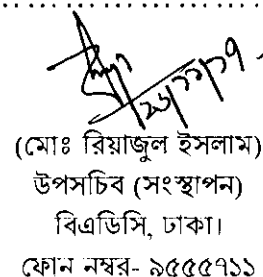 (মোঃ রিয়াজুল ইসলাম)
উপসচিব (সংস্থাপন)
বিএডিসি, ঢাকা।
ফোন নম্বর- ৯৫৫৫৭১১